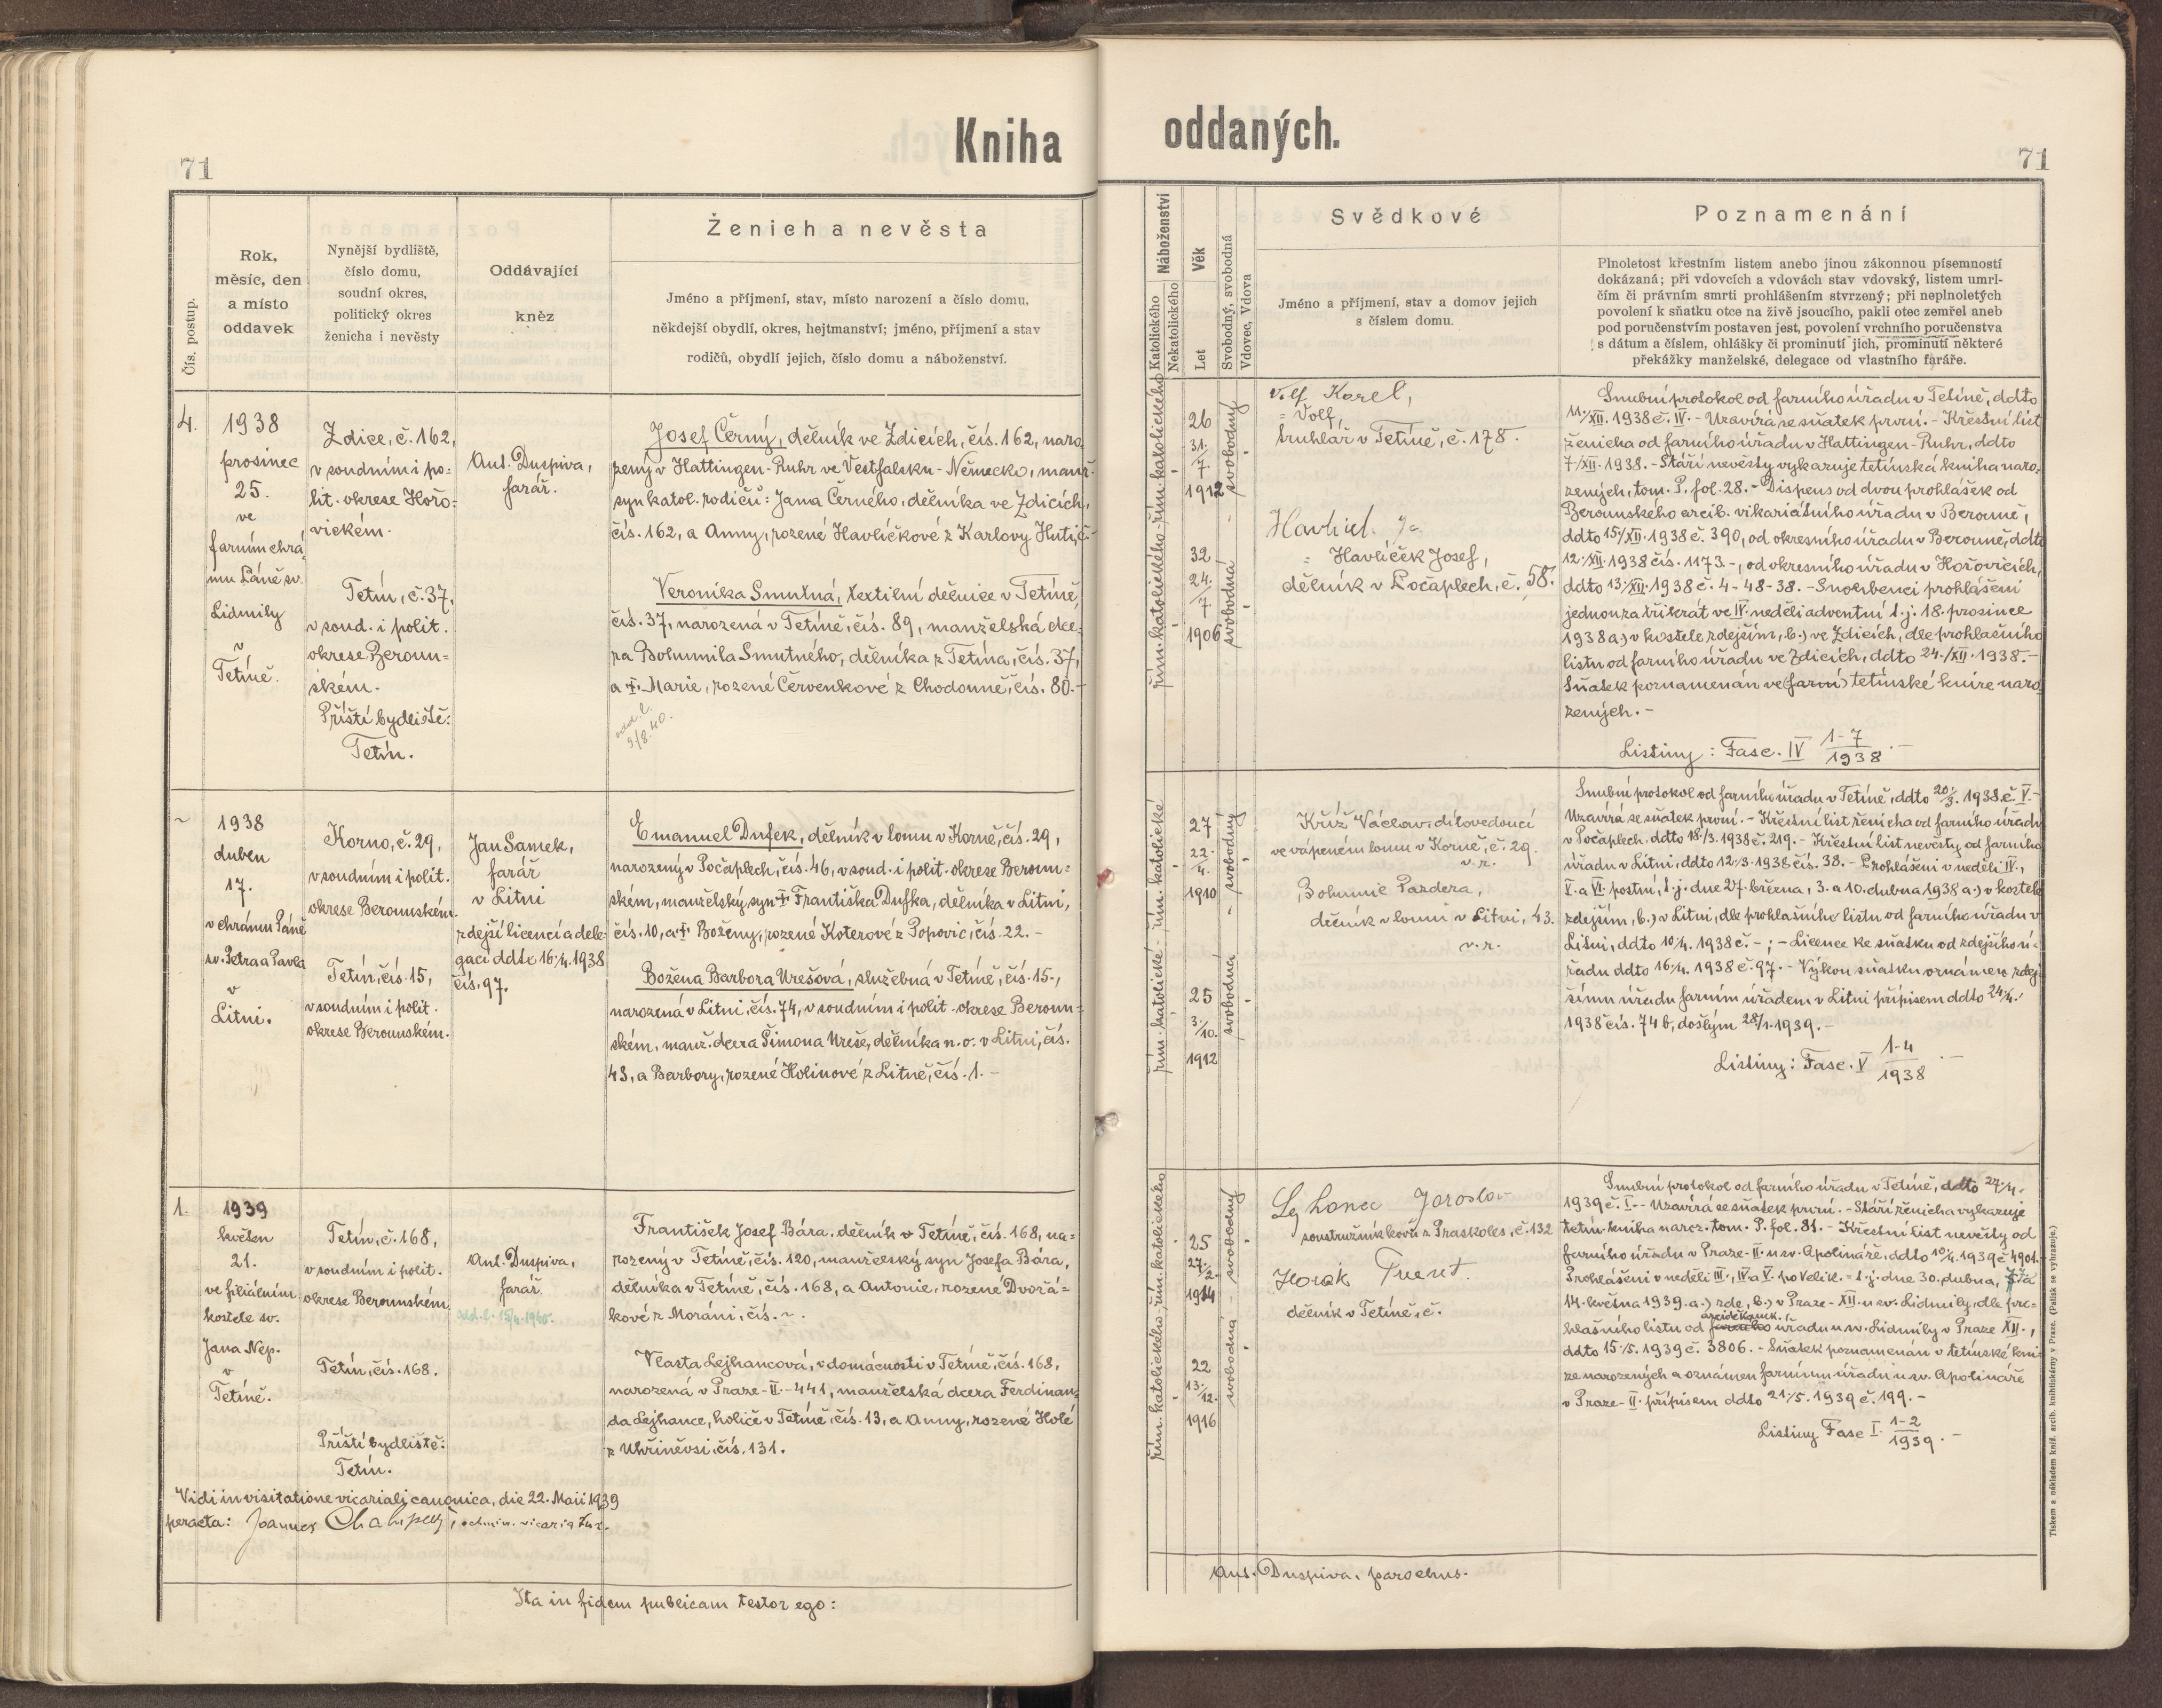 Kniha oddaných.
71
71
Čís. postup.
Rok,
měsíc, den
a místo
oddavek
Nynější bydliště,
číslo domu,
soudní okres,
politický okres
ženicha i nevěsty
Oddávající
kněz
Ženich a nevěsta
Jméno a příjmení, stav, místo narození a číslo domu,
někdejší obydlí, okres, hejtmanství; jméno, příjmení a stav
rodičů, obydlí jejich, číslo domu a náboženství.
Náboženství
Katolického
Nekatolického
Věk
Let
Svobodný, svobodná
Vdovec, Vdova
Svědkové
Jméno a příjmení, stav a domov jejich
s číslem domu.
Poznamenání
Plnoletost křestním listem anebo jinou zákonnou písemností
dokázaná; při vdovcích a vdovách stav vdovský, listem umrl-
čím či právním smrti prohlášením stvrzený; při neplnoletých
povolení k sňatku otce na živě jsoucího, pakli otec zemřel aneb
pod poručenstvím postaven jest, povolení vrchního poručenstva
s dátum a číslem, ohlášky či prominutí jich, prominutí některé
překážky manželské, delegace od vlastního faráře.
4.
1938
prosinec
25.
ve
farním chrá-
mu Páně sv.
Lidmily
v
Tetíně.
Zdice, č. 162,
v soudním i po-
lit. okrese Hořo-
vickém.
Tetín, č. 37,
v soud. i polit.
okrese Beroun-
ském.
Příští bydliště:
Tetín.
Ant. Duspiva,
farář.
Josef Černý, dělník ve Zdicích, čís. 162, naro-
zený v Hattingen-Ruhr ve Vestfalsku-Německo, manž.
syn katol. rodičů: Jana Černého, dělníka ve Zdicích,
čís. 162, a Anny, rozené Havlíčkové z Karlovy Huti, č.-
Veronika Smutná, textilní dělnice v Tetíně,
čís. 37, narozená v Tetíně, čís. 89, manželská dce-
ra Bohumila Smutného, dělníka z Tetína, čís. 37,
a †. Marie, rozené Červenkové z Chodouně, čís. 80.-
odd. l.
9/8.40.
řím. katolického
řím. katolického
26
31.
7.
1912
svobodný
32
24.
7.
1906
svobodná
Volf Karel,
= Volf,
truhlář v Tetíně, č. 178.
= Havlíček Josef,
dělník v Počaplech, č. 58.
Snubní protokol od farního úřadu v Tetíně, ddto
11./XII. 1938 č. IV. - Uzavírá se sňatek první. - Křestní list
ženicha od farního úřadu v Hattingen-Ruhr, ddto
7./XII. 1938. - Stáří nevěsty vykazuje tetínská kniha naro-
zených, tom. P. fol. 28. - Dispens od dvou prohlášek od
Berounského arcib. vikariátního úřadu v Berouně,
ddto 15./XII. 1938 č. 390, od okresního úřadu v Berouně, ddto
12./XII. 1938 čís. 1173. -, od okresního úřadu v Hořovicích,
ddto 13./XII. 1938 č. 4-48-38. - Snoubenci prohlášeni
jednou za třikrát ve IV. neděli adventní t. j. 18. prosince
1938 a.) v kostele zdejším, b.) ve Zdicích, dle prohlašního
listu od farního úřadu ve Zdicích, ddto 24./XII. 1938. -
Sňatek poznamenán ve (farní) tetínské knize naro-
zených. -
Listiny: Fasc. IV 1-7/1938. -
~
1938
duben
17.
v chrámu Páně
sv. Petra a Pavla
v
Litni.
Korno, č. 29,
v soudním i polit.
okrese Berounském.
Tetín, čís. 15,
v soudním i polit.
okrese Berounském.
Jan Samek,
farář
v Litni
zdejší licencí a dele-
gací ddto 16./4. 1938
čís. 97.
Emanuel Dufek, dělník v lomu v Korně, čís. 29,
narozený v Počaplech, čís. 46, v soud. i polit. okrese Beroun-
ském, manželský syn † Františka Dufka, dělníka v Litni,
čís. 10, a † Boženy, rozené Koterové z Popovic, čís. 22. -
Božena Barbora Urešová, služebná v Tetíně, čís. 15-,
narozená v Litni, čís. 74, v soudním i polit. okrese Beroun-
ském, manž. dcera Šimona Ureše, dělníka n. o. v Litni, čís.
43, a Barbory, rozené Holinové z Litně, čís. 1. -
řím. katolické
řím. katolické
27
22.
4.
1910
svobodný
25
3.
10.
1912
svobodná
Kříž Václav, dílovedoucí
ve vápenném lomu v Korně, č. 29.
v. r.
Bohumil Pazdera,
dělník v lomu v Litni, 43.
v. r.
Snubní protokol od farního úřadu v Tetíně, ddto 20./3. 1938 č. V. -
Uzavírá se sňatek první. - Křestní list ženicha od farního úřadu
v Počaplech, ddto 18./3. 1938 č. 219. - Křestní list nevěsty od farního
úřadu v Litni, ddto 12./3. 1938 čís. 38. - Prohlášeni v neděli IV.,
V. a VI. postní, t. j. dne 27. března, 3. a 10. dubna 1938 a.) v kostele
zdejším, b.) v Litni, dle prohlašního listu od farního úřadu v
Litni, ddto 10./4. 1938 č. - ; - Licence ke sňatku od zdejšího ú-
řadu ddto 16./4. 1938 č. 97. - Výkon sňatku oznámen zdej-
šímu úřadu farním úřadem v Litni přípisem ddto 24./4.
1938 čís. 74 b, došlým 28./1. 1939. -
Listiny: Fasc. V 1-4/1938. -
1.
1939
květen
21.
ve filiálním
kostele sv.
Jana Nep.
v
Tetíně.
Tetín, č. 168,
v soudním i polit.
okrese Berounském.
Tetín, čís. 168.
Příští bydliště:
Tetín.
Ant. Duspiva,
farář.
František Josef Bára, dělník v Tetíně, čís. 168, na-
rozený v Tetíně, čís. 120, manželský syn Josefa Báry,
dělníka v Tetíně, čís. 168, a Antonie, rozené Dvořá-
kové z Morání, čís. ~.
Vlasta Lejhancová, v domácnosti v Tetíně, čís. 168,
narozená v Praze-II.-441, manželská dcera Ferdinan-
da Lejhance, holiče v Tetíně, čís. 13, a Anny, rozené Holé
z Uhříněvsi, čís. 131.
řím. katolického
řím. katolického
25
27.
2.
1914
svobodný
22
13.
12.
1916
svobodná
Jaroslav
soustružník kovů z Praskoles, č. 132
Horák
dělník v Tetíně, č.
Snubní protokol od farního úřadu v Tetíně, ddto 27./4.
1939 č. I. - Uzavírá se sňatek první. - Stáří ženicha vykazuje
tetín. kniha naroz. tom. P. fol. 81. - Křestní list nevěsty od
farního úřadu v Praze-II. u sv. Apolináře, ddto 10./4. 1939 č. 4901. -
Prohlášeni v neděli III., IV. a V. po Velik. = t. j. dne 30. dubna, 7. a
14. května 1939 a.) zde, b.) v Praze-XII. u sv. Lidmily, dle pro-
hlašního listu od arciděkansk. úřadu u sv. Lidmily v Praze XII.,
ddto 15./5. 1939 č. 3806. - Sňatek poznamenán v tetínské kni-
ze narozených a oznámen farnímu úřadu u sv. Apolináře
v Praze-II. přípisem ddto 21./5. 1939 č. 199. -
Listiny Fasc. I. 1-2/1939. -
Vidi in visitatione vicariali canonica, die 22. Maii 1939
peracta: Joannes
Ita in fidem publicam testor ego:
Ant. Duspiva, parochus.
Tiskem a nákladem kníž. arcib. knihtiskárny v Praze. (Patisk se vyhrazuje.)